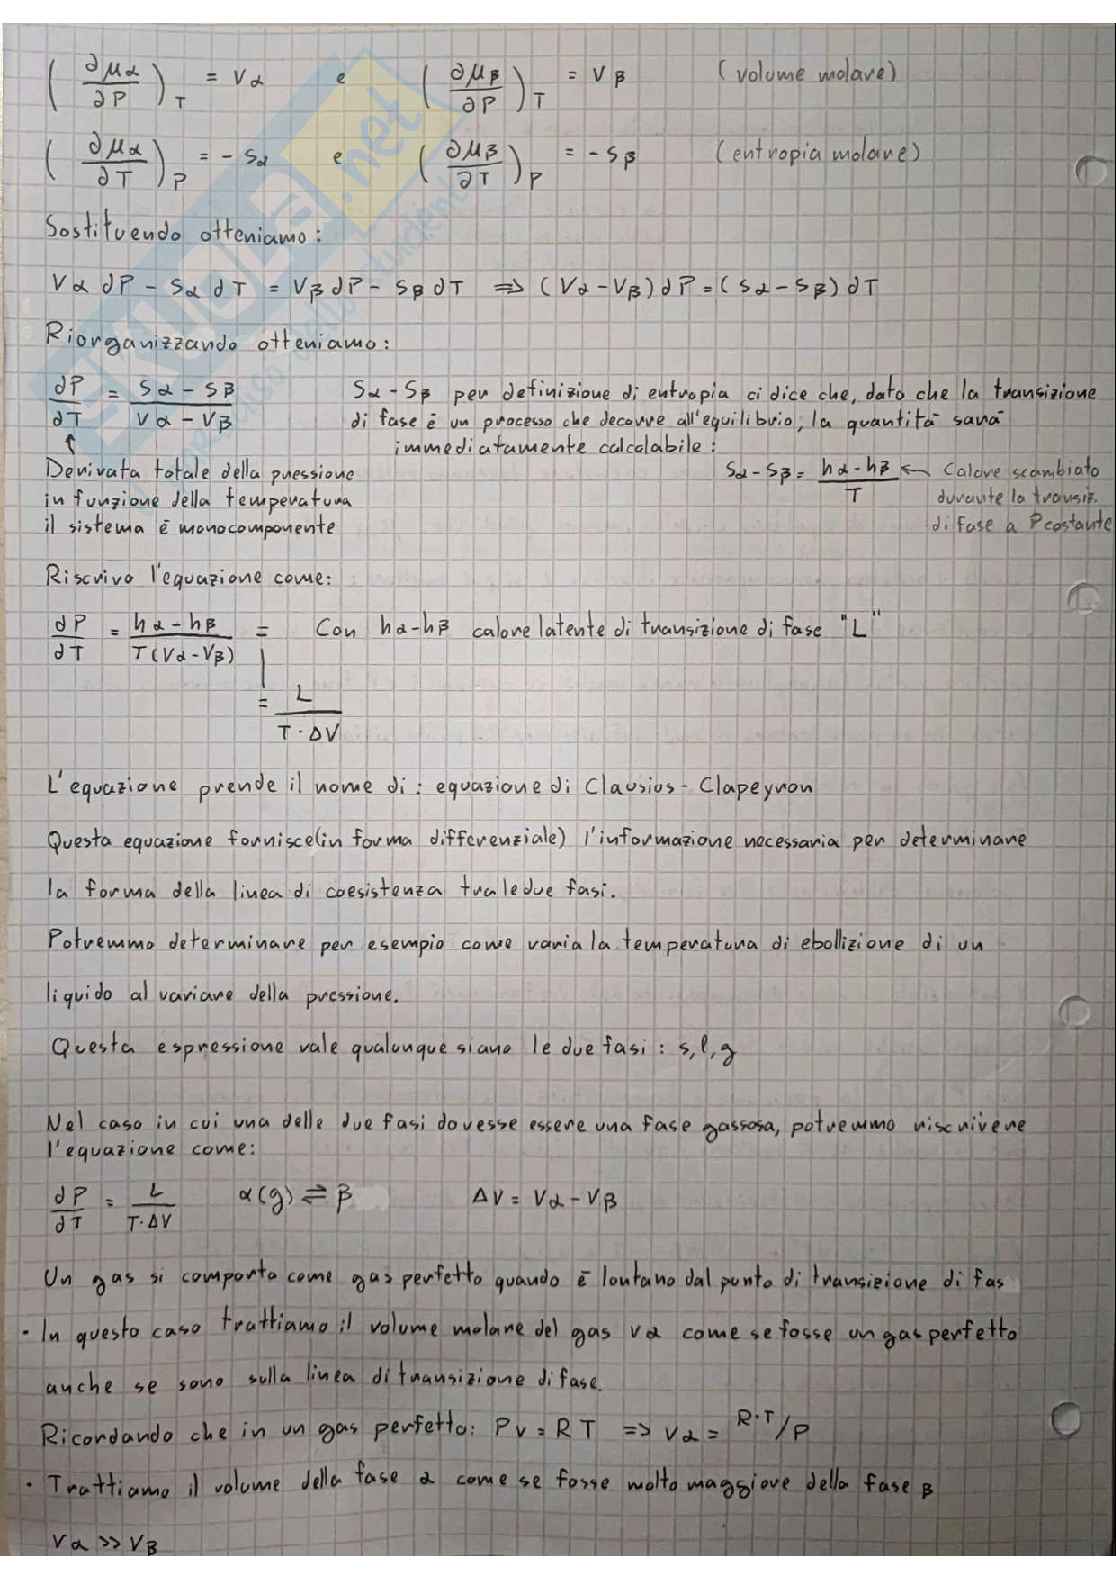 (∂μα/∂P)T = Vα e (∂μβ/∂P)T = Vβ (volume molare)
(∂μα/∂T)P = - Sα e (∂μβ/∂T)P = - Sβ (entropia molare)
Sostituendo otteniamo:
Vα dP - Sα dT = Vβ dP - Sβ dT => (Vα - Vβ) dP = (Sα - Sβ) dT
Riorganizzando otteniamo:
dP/dT = (Sα - Sβ)/(Vα - Vβ)
Sα - Sβ per definizione di entropia ci dice che, dato che la transizione
di fase è un processo che decorre all'equilibrio, la quantità sarà
immediatamente calcolabile:
Derivata totale della pressione
in funzione della temperatura
il sistema è monocomponente
Sα - Sβ = (hα - hβ)/T ← Calore scambiato
durante la transiz.
di fase a P costante
Riscrivo l'equazione come:
dP/dT = (hα - hβ)/(T(Vα - Vβ)) = Con hα - hβ calore latente di transizione di fase "L"
= L/(T · ΔV)
L'equazione prende il nome di: equazione di Clausius - Clapeyron
Questa equazione fornisce (in forma differenziale) l'informazione necessaria per determinare
la forma della linea di coesistenza tra le due fasi.
Potremmo determinare per esempio come varia la temperatura di ebollizione di un
liquido al variare della pressione.
Questa espressione vale qualunque siano le due fasi: s, l, g
Nel caso in cui una delle due fasi dovesse essere una fase gassosa, potremmo riscrivere
l'equazione come:
dP/dT = L/(T·ΔV) α(g) ⇌ β ΔV = Vα - Vβ
Un gas si comporta come gas perfetto quando è lontano dal punto di transizione di fas
• In questo caso trattiamo il volume molare del gas Vα come se fosse un gas perfetto
anche se sono sulla linea di transizione di fase.
Ricordando che in un gas perfetto: Pv = RT => Vα = R·T/P
• Trattiamo il volume della fase α come se fosse molto maggiore della fase β
Vα >> Vβ